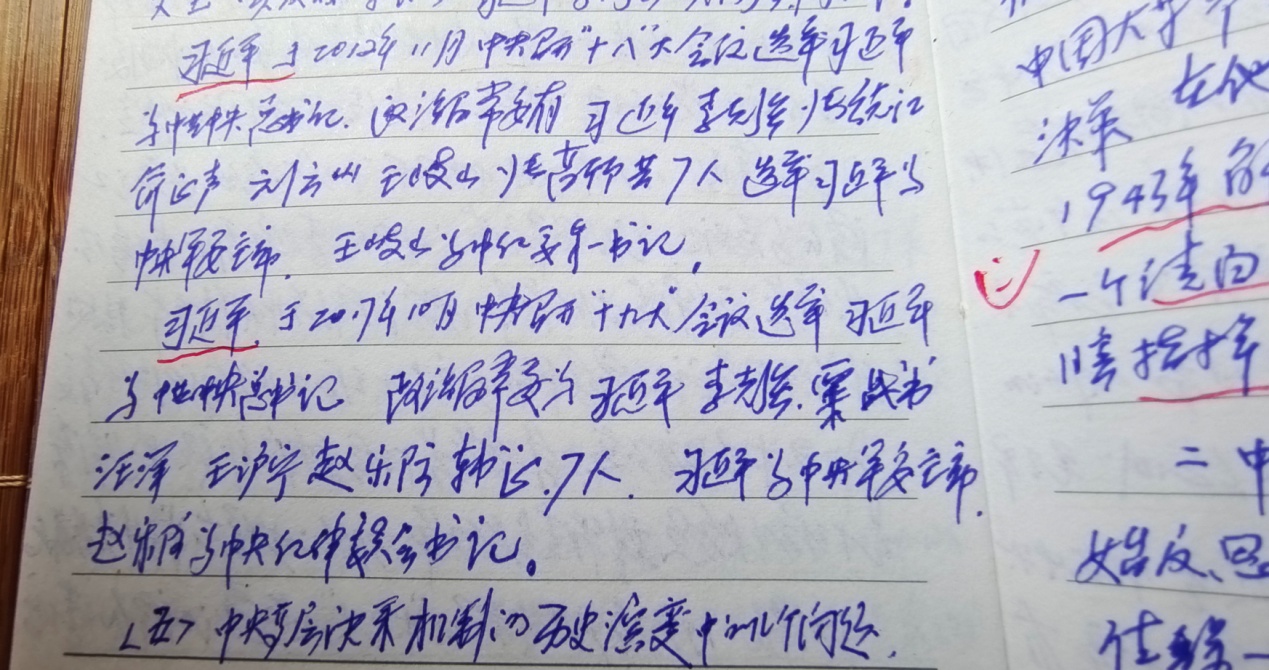 习近平于2012年11月中央召开"十八"大会议选举习近平
为中共中央总书记.政治局常委有习近平李克强张德江
俞正声刘云山王岐山张高丽共7人选举习近平为
中央军委主席.王岐山为中纪委第一书记,
习近平.于2017年10月中央召开"十九大"会议选举习近平
为中共中央总书记 政治局常委为习近平李克强.栗战书
汪洋王沪宁赵乐际韩正.7人.习近平为中央军委主席.
赵乐际为中央纪律委员会书记。
<五>中央高层决策机制的历史演变中的几个问题.
中国大
在他
决策
1943年
一个清白
瞎指挥
二中